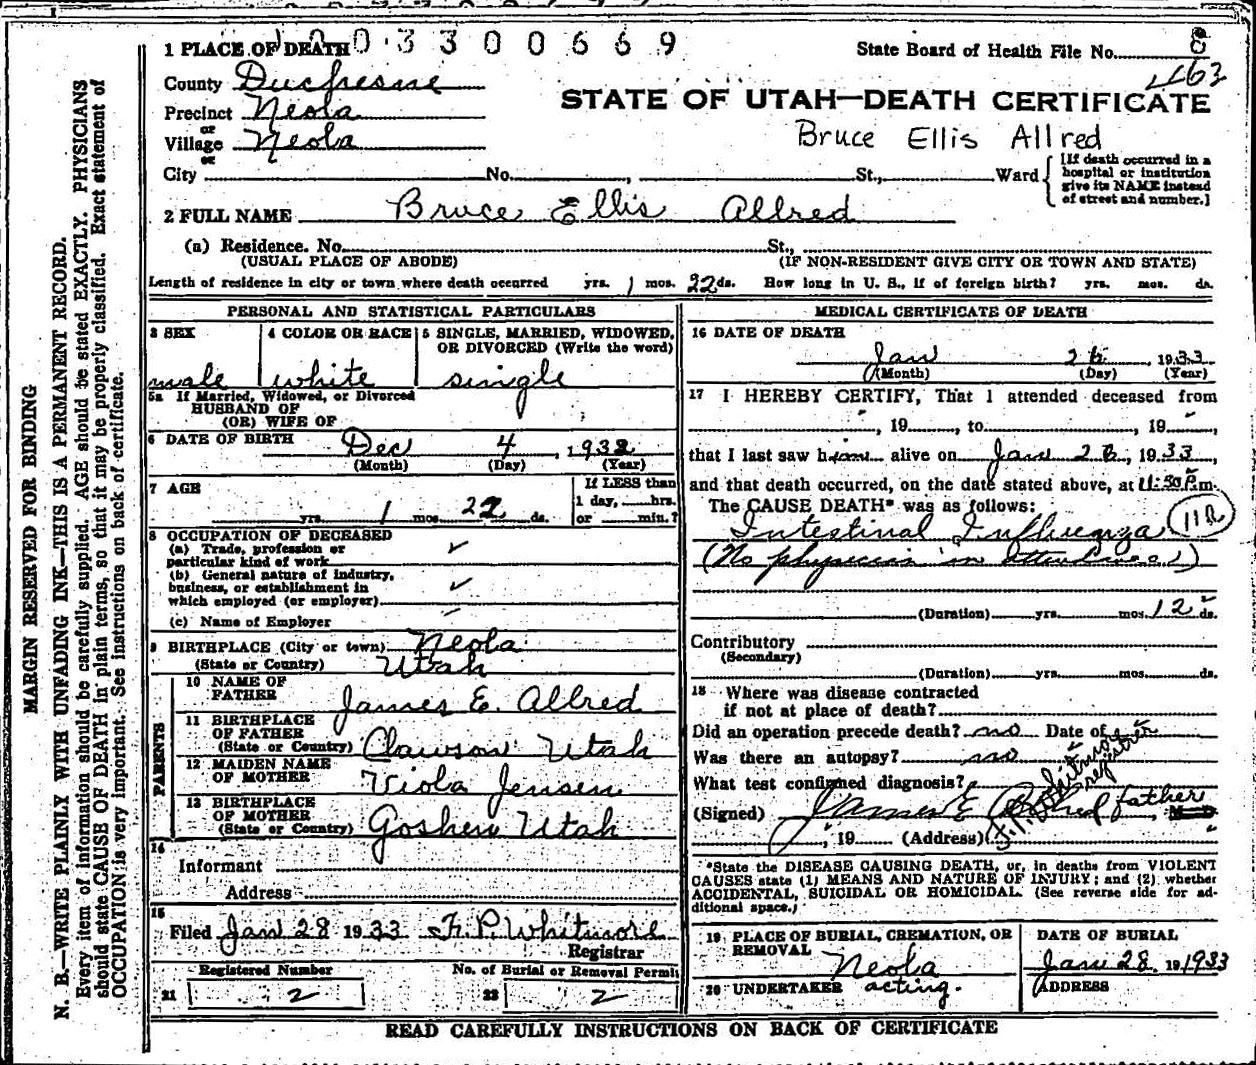 1 PLACE OF DEATH 0 3 3 0 0 6 6 9
State Board of Health File No. 8
463
County Duchesne
STATE OF UTAH—DEATH CERTIFICATE
Precinct Neola
or
Village Neola
or
Bruce Ellis Allred
City No. , St., Ward
[If death occurred in a
hospital or institution
give its NAME instead
of street and number.]
2 FULL NAME Bruce Ellis Allred
(a) Residence. No. St.,
(USUAL PLACE OF ABODE) (IF NON-RESIDENT GIVE CITY OR TOWN AND STATE)
Length of residence in city or town where death occurred yrs. 1 mos. 22 ds. How long in U. S., if of foreign birth? yrs. mos. ds.
PERSONAL AND STATISTICAL PARTICULARS
3 SEX
male
4 COLOR OR RACE
white
5 SINGLE, MARRIED, WIDOWED,
OR DIVORCED (Write the word)
single
5a If Married, Widowed, or Divorced
HUSBAND OF
(OR) WIFE OF
6 DATE OF BIRTH
Dec 4, 1932
(Month) (Day) (Year)
7 AGE
yrs. 1 mos. 22 ds.
If LESS than
1 day, hrs.
or min.?
8 OCCUPATION OF DECEASED
(a) Trade, profession or
particular kind of work
(b) General nature of industry,
business, or establishment in
which employed (or employer)
(c) Name of Employer
9 BIRTHPLACE (City or town) Neola
(State or Country) Utah
PARENTS
10 NAME OF
FATHER James E. Allred
11 BIRTHPLACE
OF FATHER
(State or Country) Clawson Utah
12 MAIDEN NAME
OF MOTHER Viola Jensen
13 BIRTHPLACE
OF MOTHER
(State or Country) Goshen Utah
14
Informant
Address
15
Filed Jan 28 1933 F. P. Whitmore
Registrar
Registered Number
21 2
No. of Burial or Removal Permit
22 2
MEDICAL CERTIFICATE OF DEATH
16 DATE OF DEATH
Jan 26, 1933
(Month) (Day) (Year)
17 I HEREBY CERTIFY, That I attended deceased from
, 19 , to , 19 ,
that I last saw him alive on Jan 26, 1933,
and that death occurred, on the date stated above, at 11:30 P.m.
The CAUSE DEATH* was as follows:
Intestinal Influenza
(No physician in attendance)
(Duration) yrs. mos. 12 ds.
Contributory
(Secondary)
(Duration) yrs. mos. ds.
18 Where was disease contracted
if not at place of death?
Did an operation precede death? no Date of
Was there an autopsy? no
What test confirmed diagnosis?
(Signed) James E Allred father
, 19 (Address)
F. P. Whitmore
registrar
*State the DISEASE CAUSING DEATH, or, in deaths from VIOLENT
CAUSES state (1) MEANS AND NATURE OF INJURY; and (2) whether
ACCIDENTAL, SUICIDAL OR HOMICIDAL. (See reverse side for ad-
ditional space.)
19 PLACE OF BURIAL, CREMATION, OR
REMOVAL
Neola
DATE OF BURIAL
Jan 28 1933
20 UNDERTAKER acting.
ADDRESS
READ CAREFULLY INSTRUCTIONS ON BACK OF CERTIFICATE
MARGIN RESERVED FOR BINDING
N. B.—WRITE PLAINLY WITH UNFADING INK—THIS IS A PERMANENT RECORD.
Every item of information should be carefully supplied. AGE should be stated EXACTLY. PHYSICIANS
should state CAUSE OF DEATH in plain terms, so that it may be properly classified. Exact statement of
OCCUPATION is very important. See instructions on back of certificate.